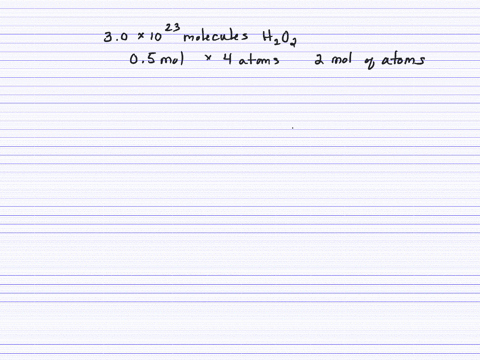 3.0 × 10²³ molecules H₂O₂
0.5 mol × 4 atoms 2 mol of atoms